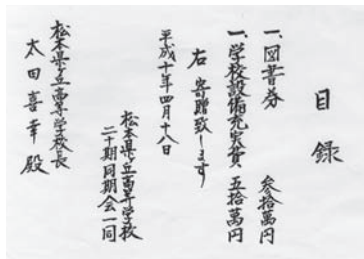 目録
一、図書券 参拾萬円
一、学校設備充実費 五拾萬円
右 寄贈致します
平成十年四月十八日
松本県立高等学校
二十期同期会一同
松本県立高等学校長
太田喜幸殿